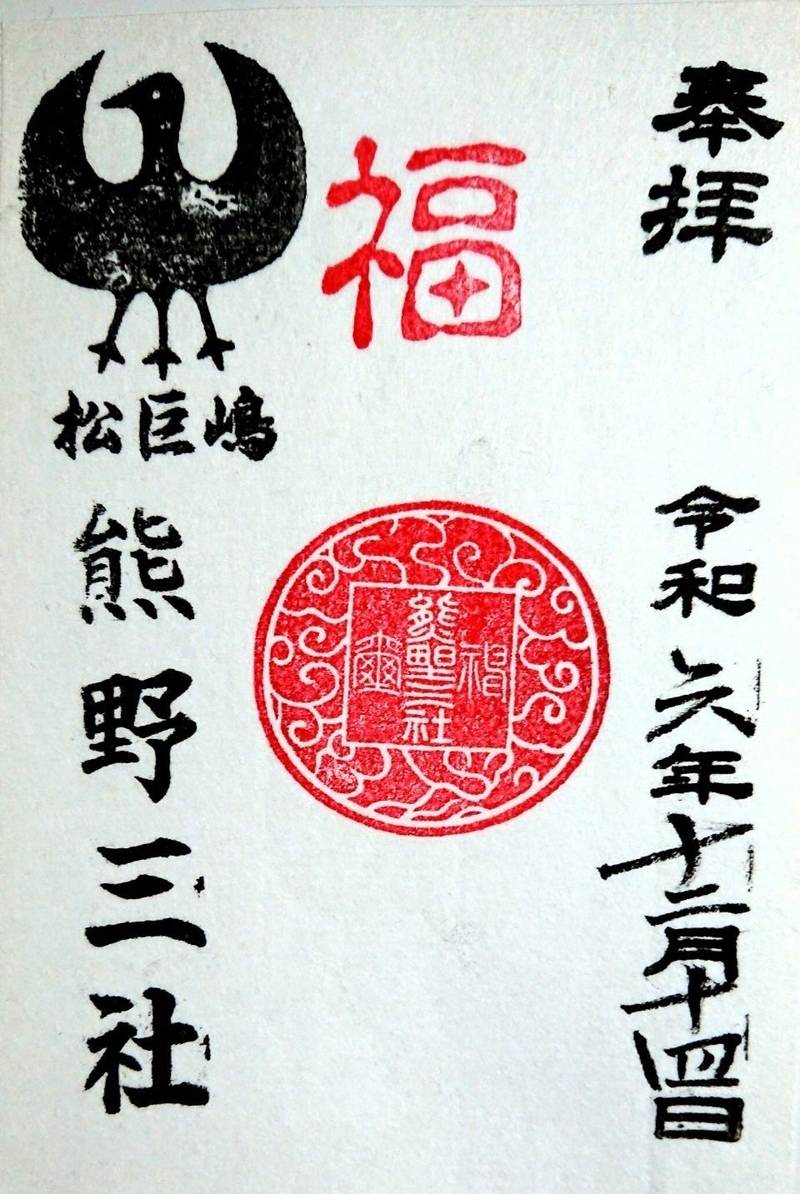 奉拝
令和六年十二月十四日
福
熊聖三社
松巨嶋
熊野三社